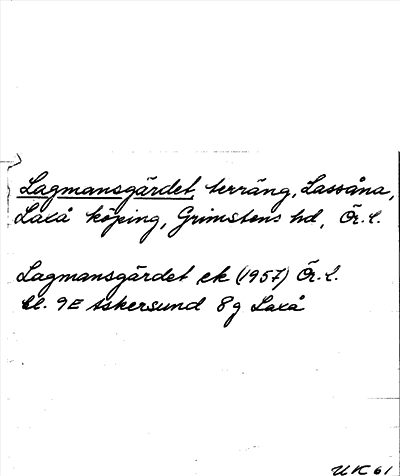 Lagmansgärdet, terräng, Lassåna,
Laxå köping, Grimstens hd, Ör. l.
Lagmansgärdet ek (1957) Ör. l.
bl. 9E Askersund 8g Laxå
UK 61